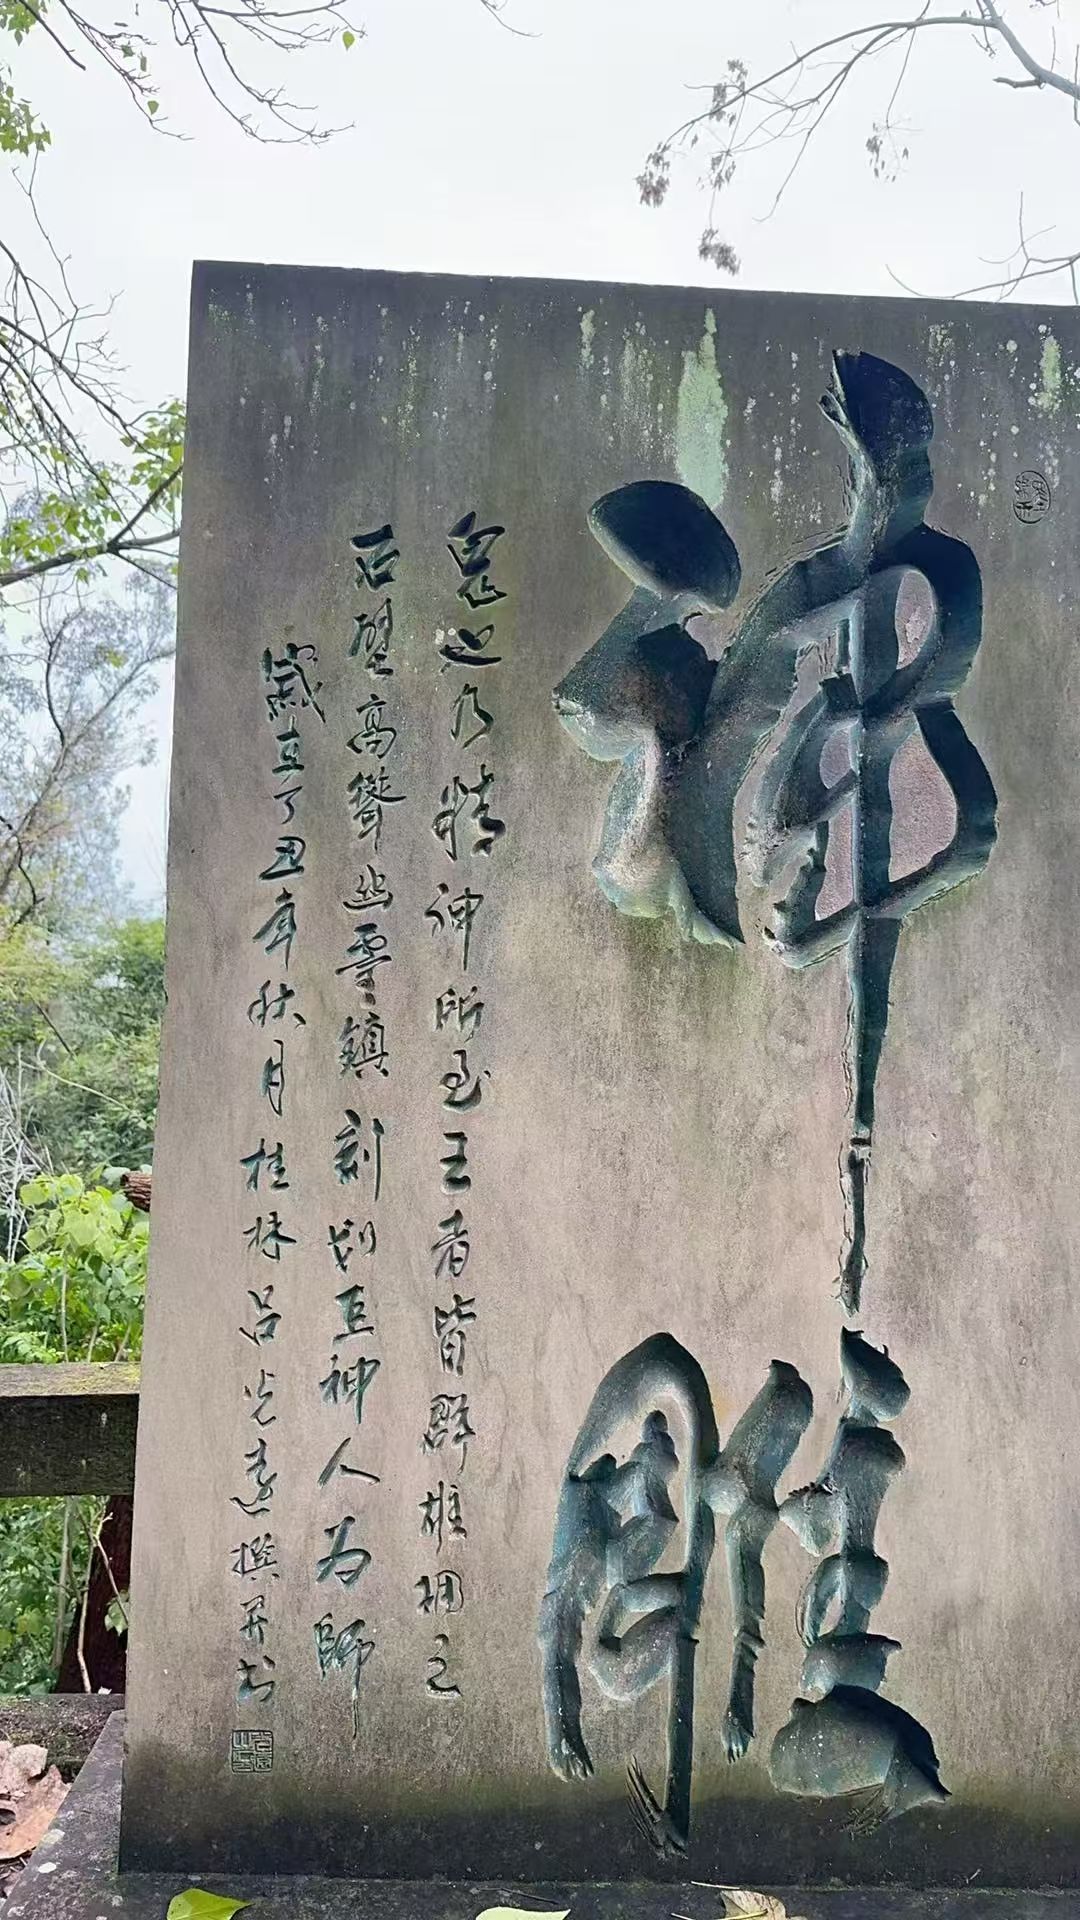 神雕
鬼也乃精神所至王者皆群雄拥之
石壁高聳幽靈鎮刻划巨神人为師
歲在丁丑年秋月桂林呂光遠撰并书